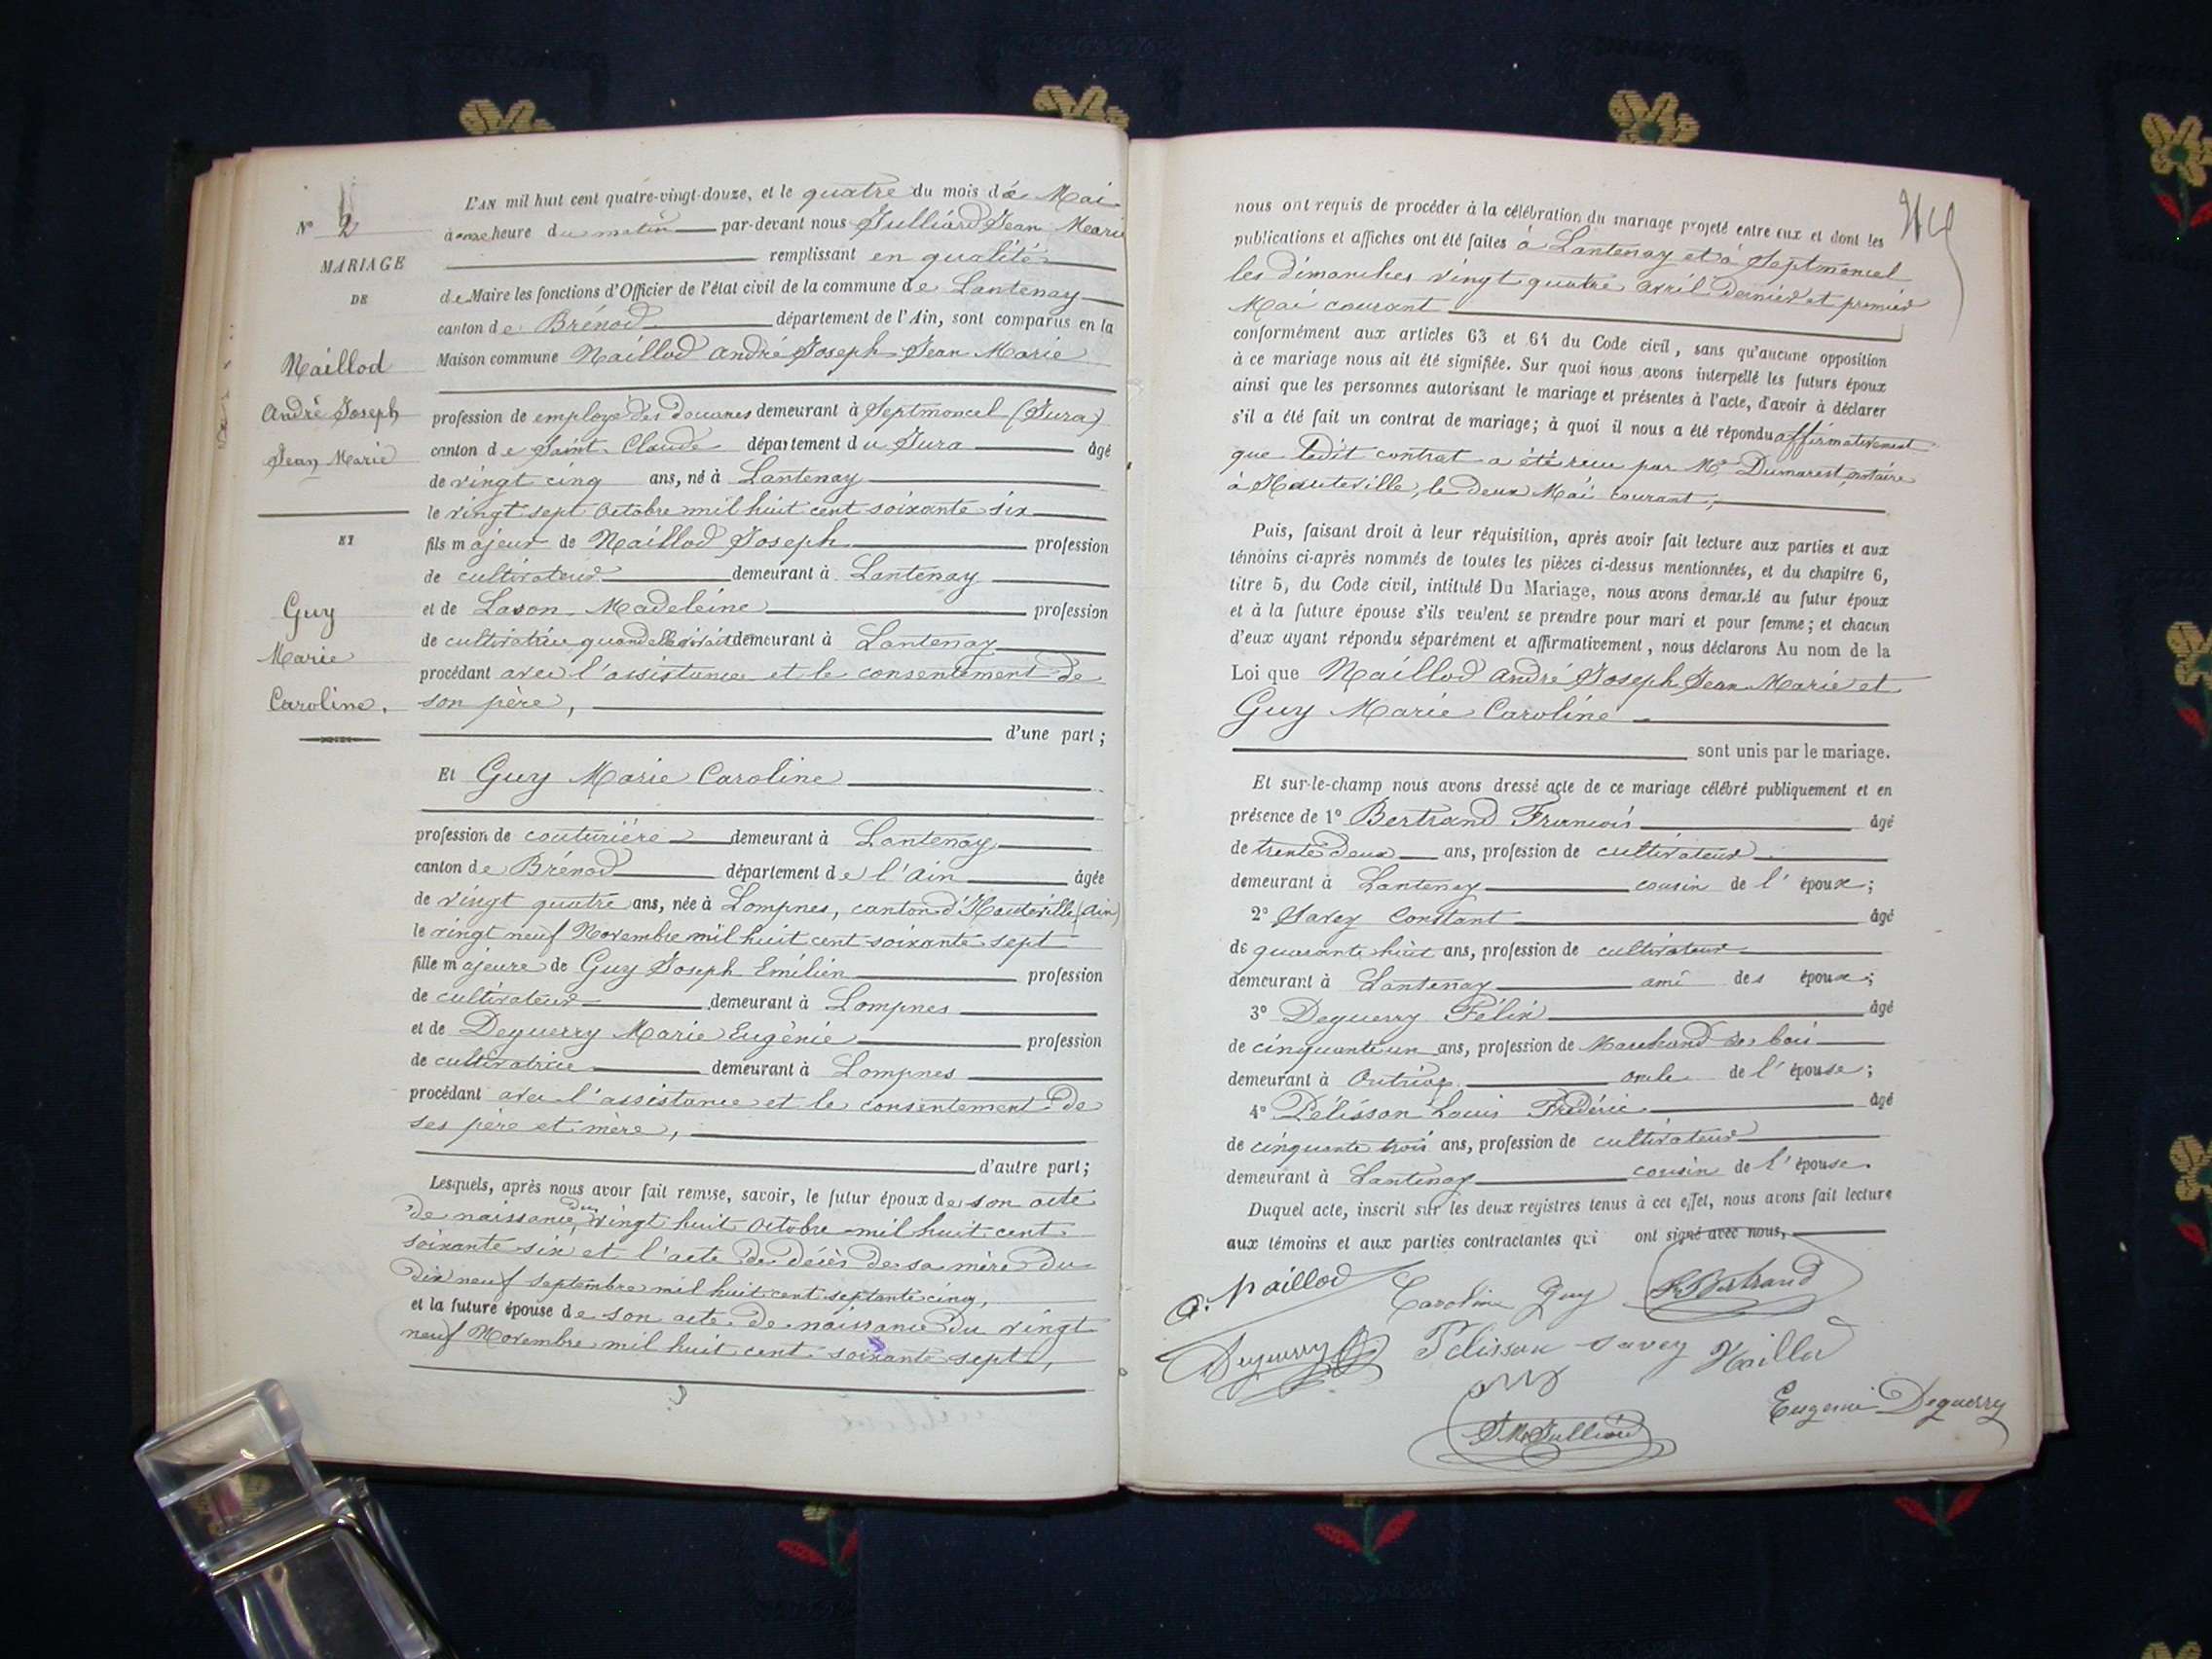 N° 2
MARIAGE
DE
Naillod
André Joseph
Jean Marie
ET
Guy
Marie
Caroline.
L'AN mil huit cent quatre-vingt-douze, et le quatre du mois de Mai
à onze heure du matin par-devant nous Julliard Jean Marie
remplissant en qualité
de Maire les fonctions d'Officier de l'état civil de la commune de Lantenay
canton de Brénod département de l'Ain, sont comparus en la
Maison commune Naillod André Joseph Jean Marie
profession de employé des douanes demeurant à Septmoncel (Jura)
canton de Saint-Claude département du Jura âgé
de vingt cinq ans, né à Lantenay
le vingt sept Octobre mil huit cent soixante six
fils majeur de Naillod Joseph profession
de cultivateur demeurant à Lantenay
et de Lason Madeleine profession
de cultivatrice quand elle vivait demeurant à Lantenay
procédant avec l'assistance et le consentement de
son père,
d'une part;
Et Guy Marie Caroline
profession de couturière demeurant à Lantenay
canton de Brénod département de l'Ain âgée
de vingt quatre ans, née à Lompnes, canton d'Hauteville (Ain)
le vingt neuf Novembre mil huit cent soixante sept
fille majeure de Guy Joseph Emilien profession
de cultivateur demeurant à Lompnes
et de Deguerry Marie Eugénie profession
de cultivatrice demeurant à Lompnes
procédant avec l'assistance et le consentement de
ses père et mère,
d'autre part;
Lesquels, après nous avoir fait remise, savoir, le futur époux de son acte
de naissance du vingt huit Octobre mil huit cent
soixante six et l'acte de décès de sa mère du
dix neuf Septembre mil huit cent septante cinq,
et la future épouse de son acte de naissance du vingt
neuf Novembre mil huit cent soixante sept,
nous ont requis de procéder à la célébration du mariage projeté entre eux et dont les
publications et affiches ont été faites à Lantenay et à Septmoncel
les dimanches vingt quatre avril dernier et premier
Mai courant
conformément aux articles 63 et 64 du Code civil, sans qu'aucune opposition
à ce mariage nous ait été signifiée. Sur quoi nous avons interpellé les futurs époux
ainsi que les personnes autorisant le mariage et présentes à l'acte, d'avoir à déclarer
s'il a été fait un contrat de mariage; à quoi il nous a été répondu affirmativement
que ledit contrat a été reçu par Me Dumarest, notaire
à Hauteville, le deux Mai courant;
Puis, faisant droit à leur réquisition, après avoir fait lecture aux parties et aux
témoins ci-après nommés de toutes les pièces ci-dessus mentionnées, et du chapitre 6,
titre 5, du Code civil, intitulé Du Mariage, nous avons demandé au futur époux
et à la future épouse s'ils veulent se prendre pour mari et pour femme; et chacun
d'eux ayant répondu séparément et affirmativement, nous déclarons Au nom de la
Loi que Naillod André Joseph Jean Marie et
Guy Marie Caroline
sont unis par le mariage.
Et sur-le-champ nous avons dressé acte de ce mariage célébré publiquement et en
présence de 1° Bertrand François âgé
de trente deux ans, profession de cultivateur
demeurant à Lantenay cousin de l'époux;
2° Savey Constant âgé
de quarante huit ans, profession de cultivateur
demeurant à Lantenay ami des époux;
3° Deguerry Félix âgé
de cinquante un ans, profession de Marchand de bois
demeurant à Outriaz oncle de l'épouse;
4° Pélisson Louis Frédéric âgé
de cinquante trois ans, profession de cultivateur
demeurant à Lantenay cousin de l'épouse.
Duquel acte, inscrit sur les deux registres tenus à cet effet, nous avons fait lecture
aux témoins et aux parties contractantes qui ont signé avec nous,
a. Naillod Caroline Guy F. Bertrand
Deguerry Pélisson Savey Naillod
Guy
J. M. Julliard Eugénie Deguerry